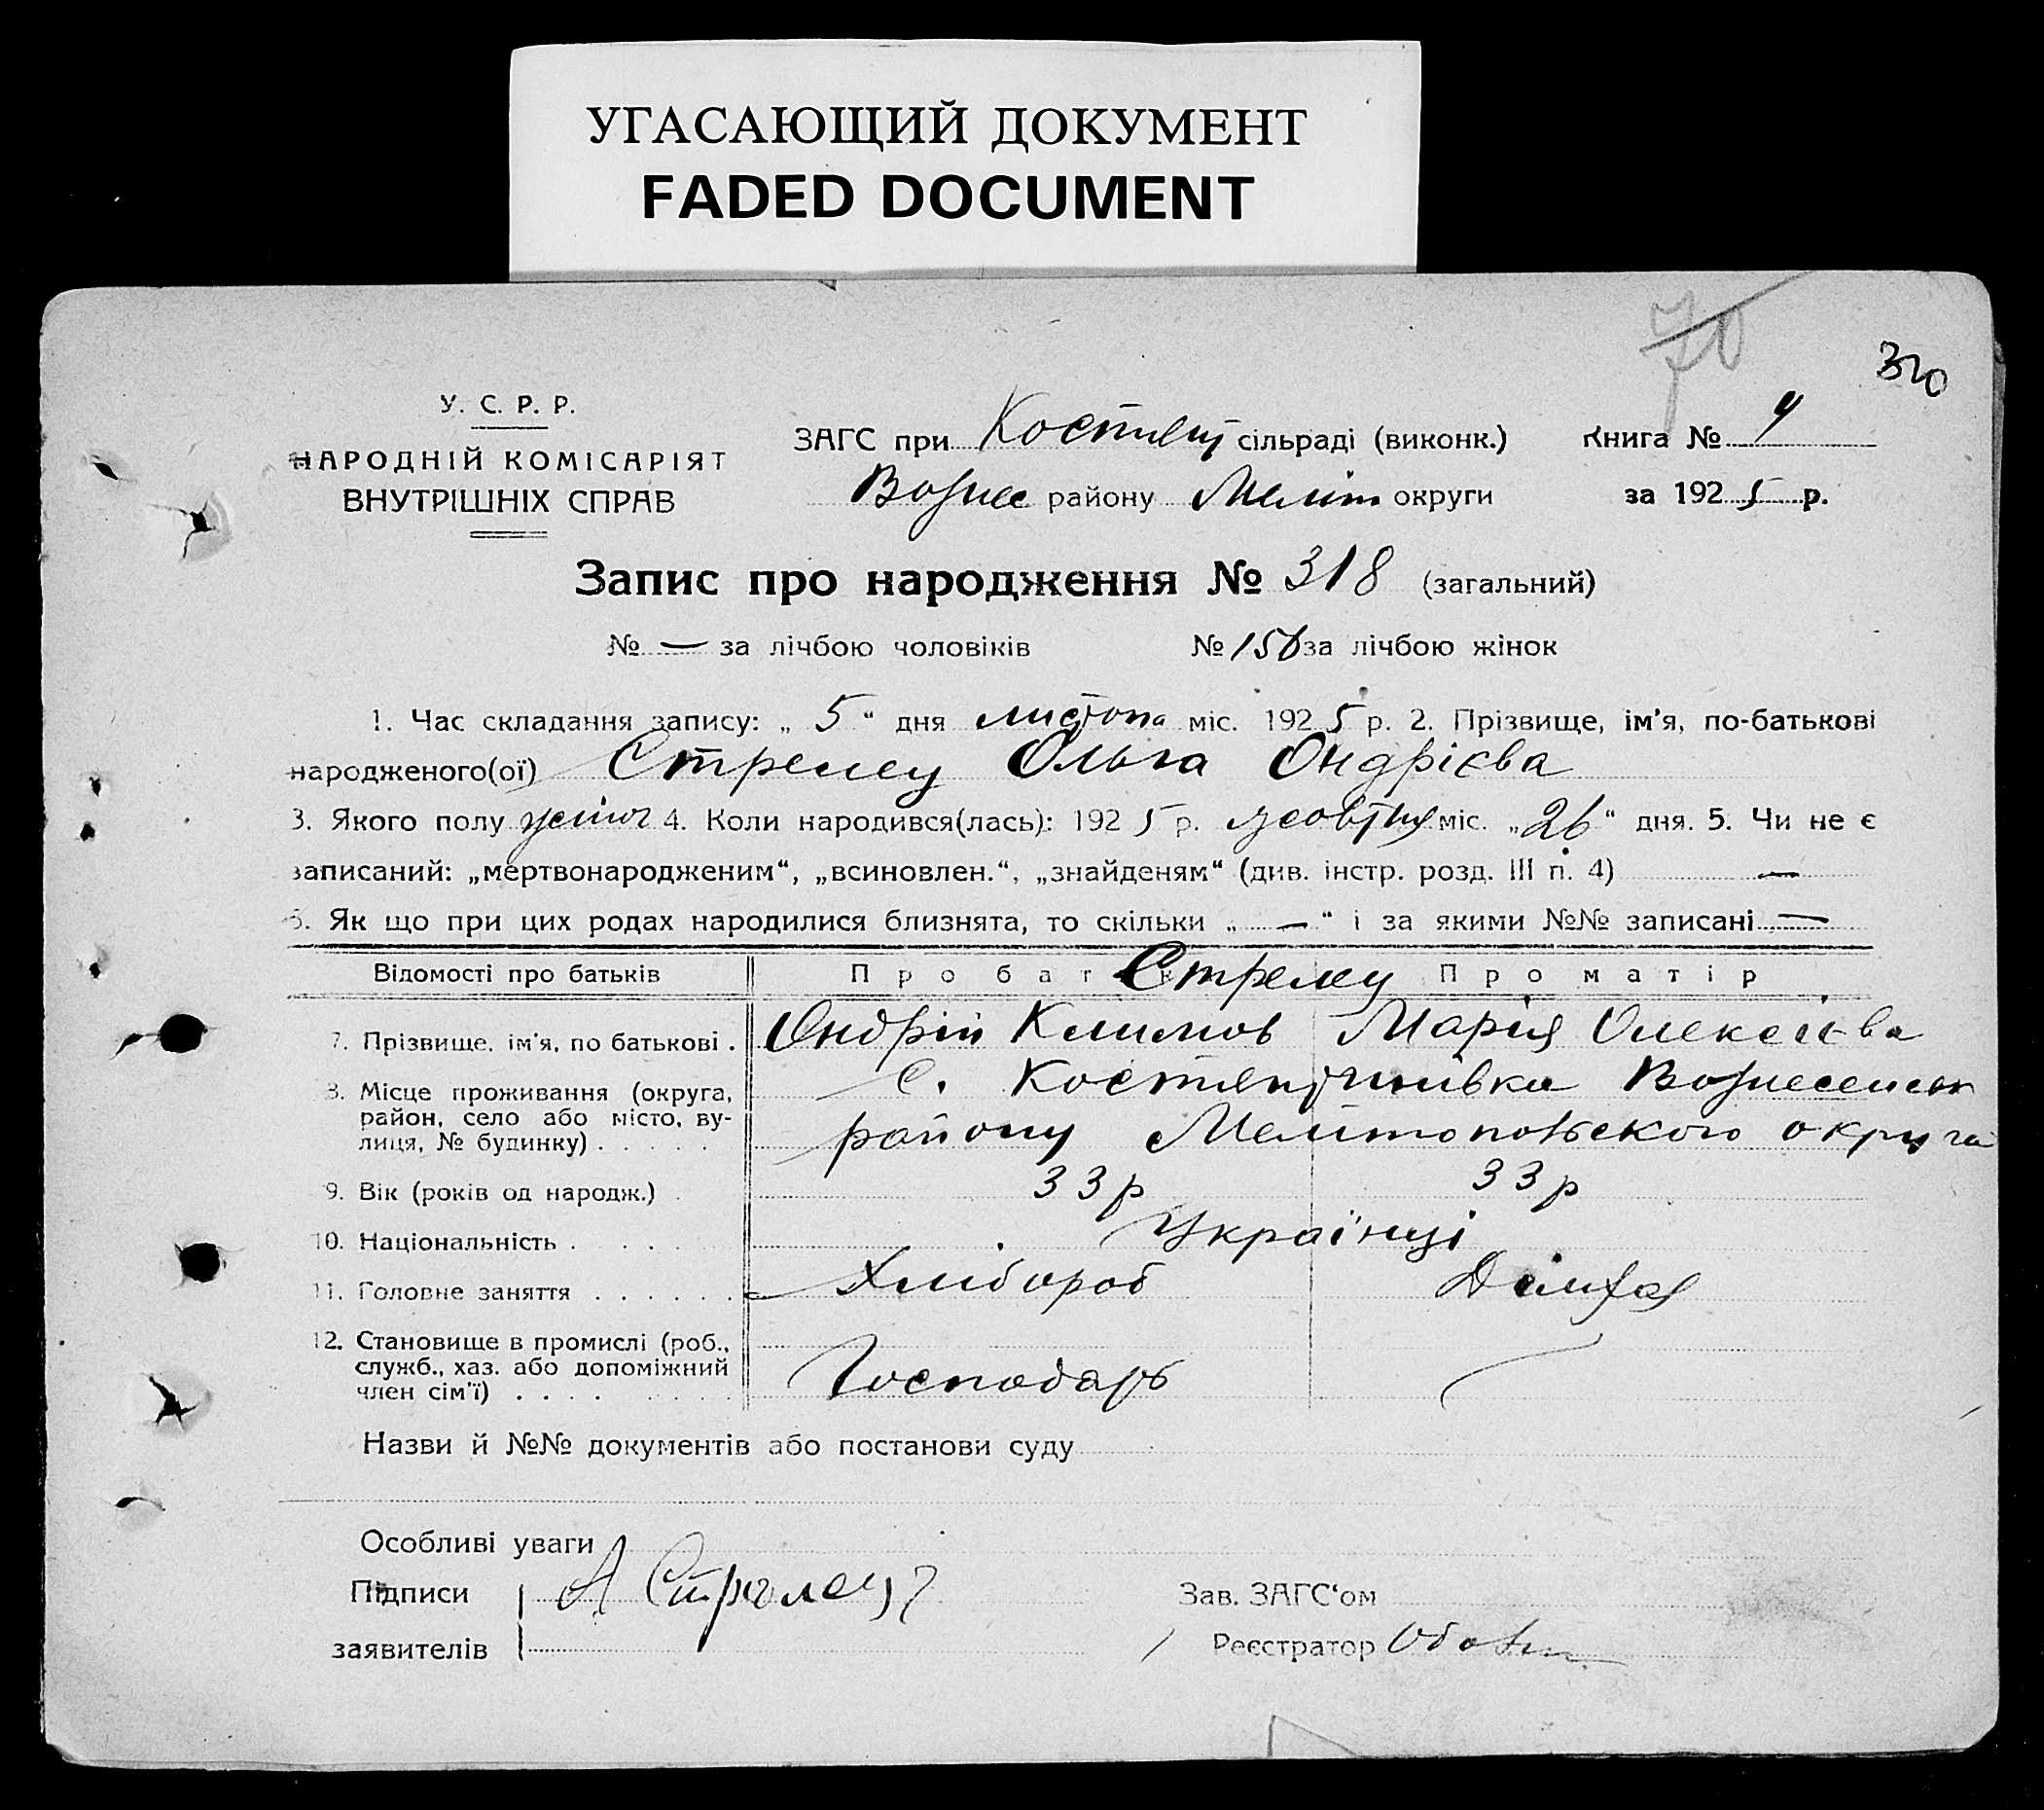 УГАСАЮЩИЙ ДОКУМЕНТ
FADED DOCUMENT
70
320
У. С. Р. Р.
НАРОДНІЙ КОМІСАРІЯТ
ВНУТРІШНІХ СПРАВ
ЗАГС при Костянт сільраді (виконк.) Книга №
Вознес району Меліт округи за 1925 р.
Запис про народження № 318 (загальний)
№ — за лічбою чоловіків № 156 за лічбою жінок
1. Час складання запису: „ 5 “ дня листопа міс. 1925 р. 2. Прізвище, ім’я, по-батькові
народженого(ої) Стрелец Ольга Ондрієва
3. Якого полу жіноч 4. Коли народився(лась): 1925 р. жовтня міс. „26“ дня. 5. Чи не є
записаний: „мертвонародженим“, „всиновлен.“, „знайденям“ (див. інстр. розд. III п. 4) —
6. Як що при цих родах народилися близнята, то скільки „ — “ і за якими №№ записані —
Відомості про батьків Про бат Стрелец Про матір
7. Прізвище, ім’я, по батькові . Ондрій Климов Марія Олексієва
8. Місце проживання (округа, с. Костянтинівка Вознесенськ
район, село або місто, ву-
лиця, № будинку) . . . . . району Мелітопольского округа
9. Вік (років од народж.) . 33 р 33 р
10. Національність . . . . Українці
11. Головне заняття . . . . . . Хлібороб Домхаз
12. Становище в промислі (роб.,
служб., хаз. або допоміжний Господарь
член сім’ї) . . . .
Назви й №№ документів або постанови суду
Особливі уваги
Підписи А Стрелец Зав. ЗАГС‘ом
заявителів Реєстратор